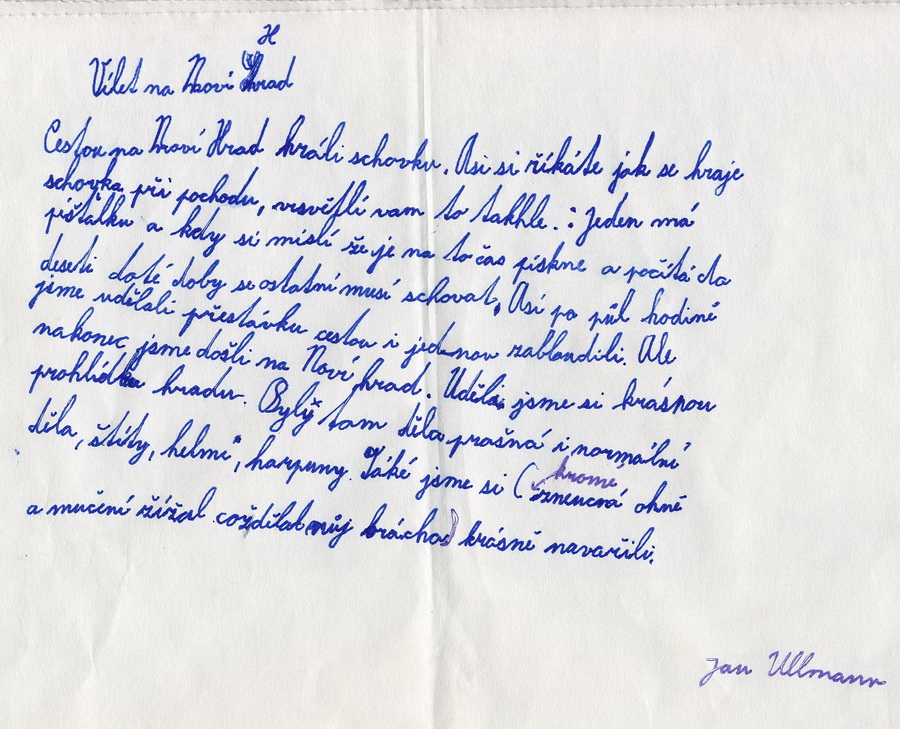 H
Vílet na Noví Hrad
Cestou na Noví Hrad hráli schovku. Asi si říkáte jak se hraje
schovka při pochodu, visvětlí vam to takhle.: Jeden má
píštalku a kdy si mislí že je na točas pískne a počítá do
deseti doté doby se ostatní musí schovat. Asi po půl hodině
jsme udělali přestávku cestou i jednou zabloudili. Ale
nakonec jsme došli na Noví hrad. Uděli jsme si krásnou
prohlídku hradu. Byly tam děla prašná i normální
děla, štíty, helmi, harpuny. Také jsme si (
krome
ohně
a mučení žížal coždělal můj brácha) krásně navařili.
Jan Ullmann